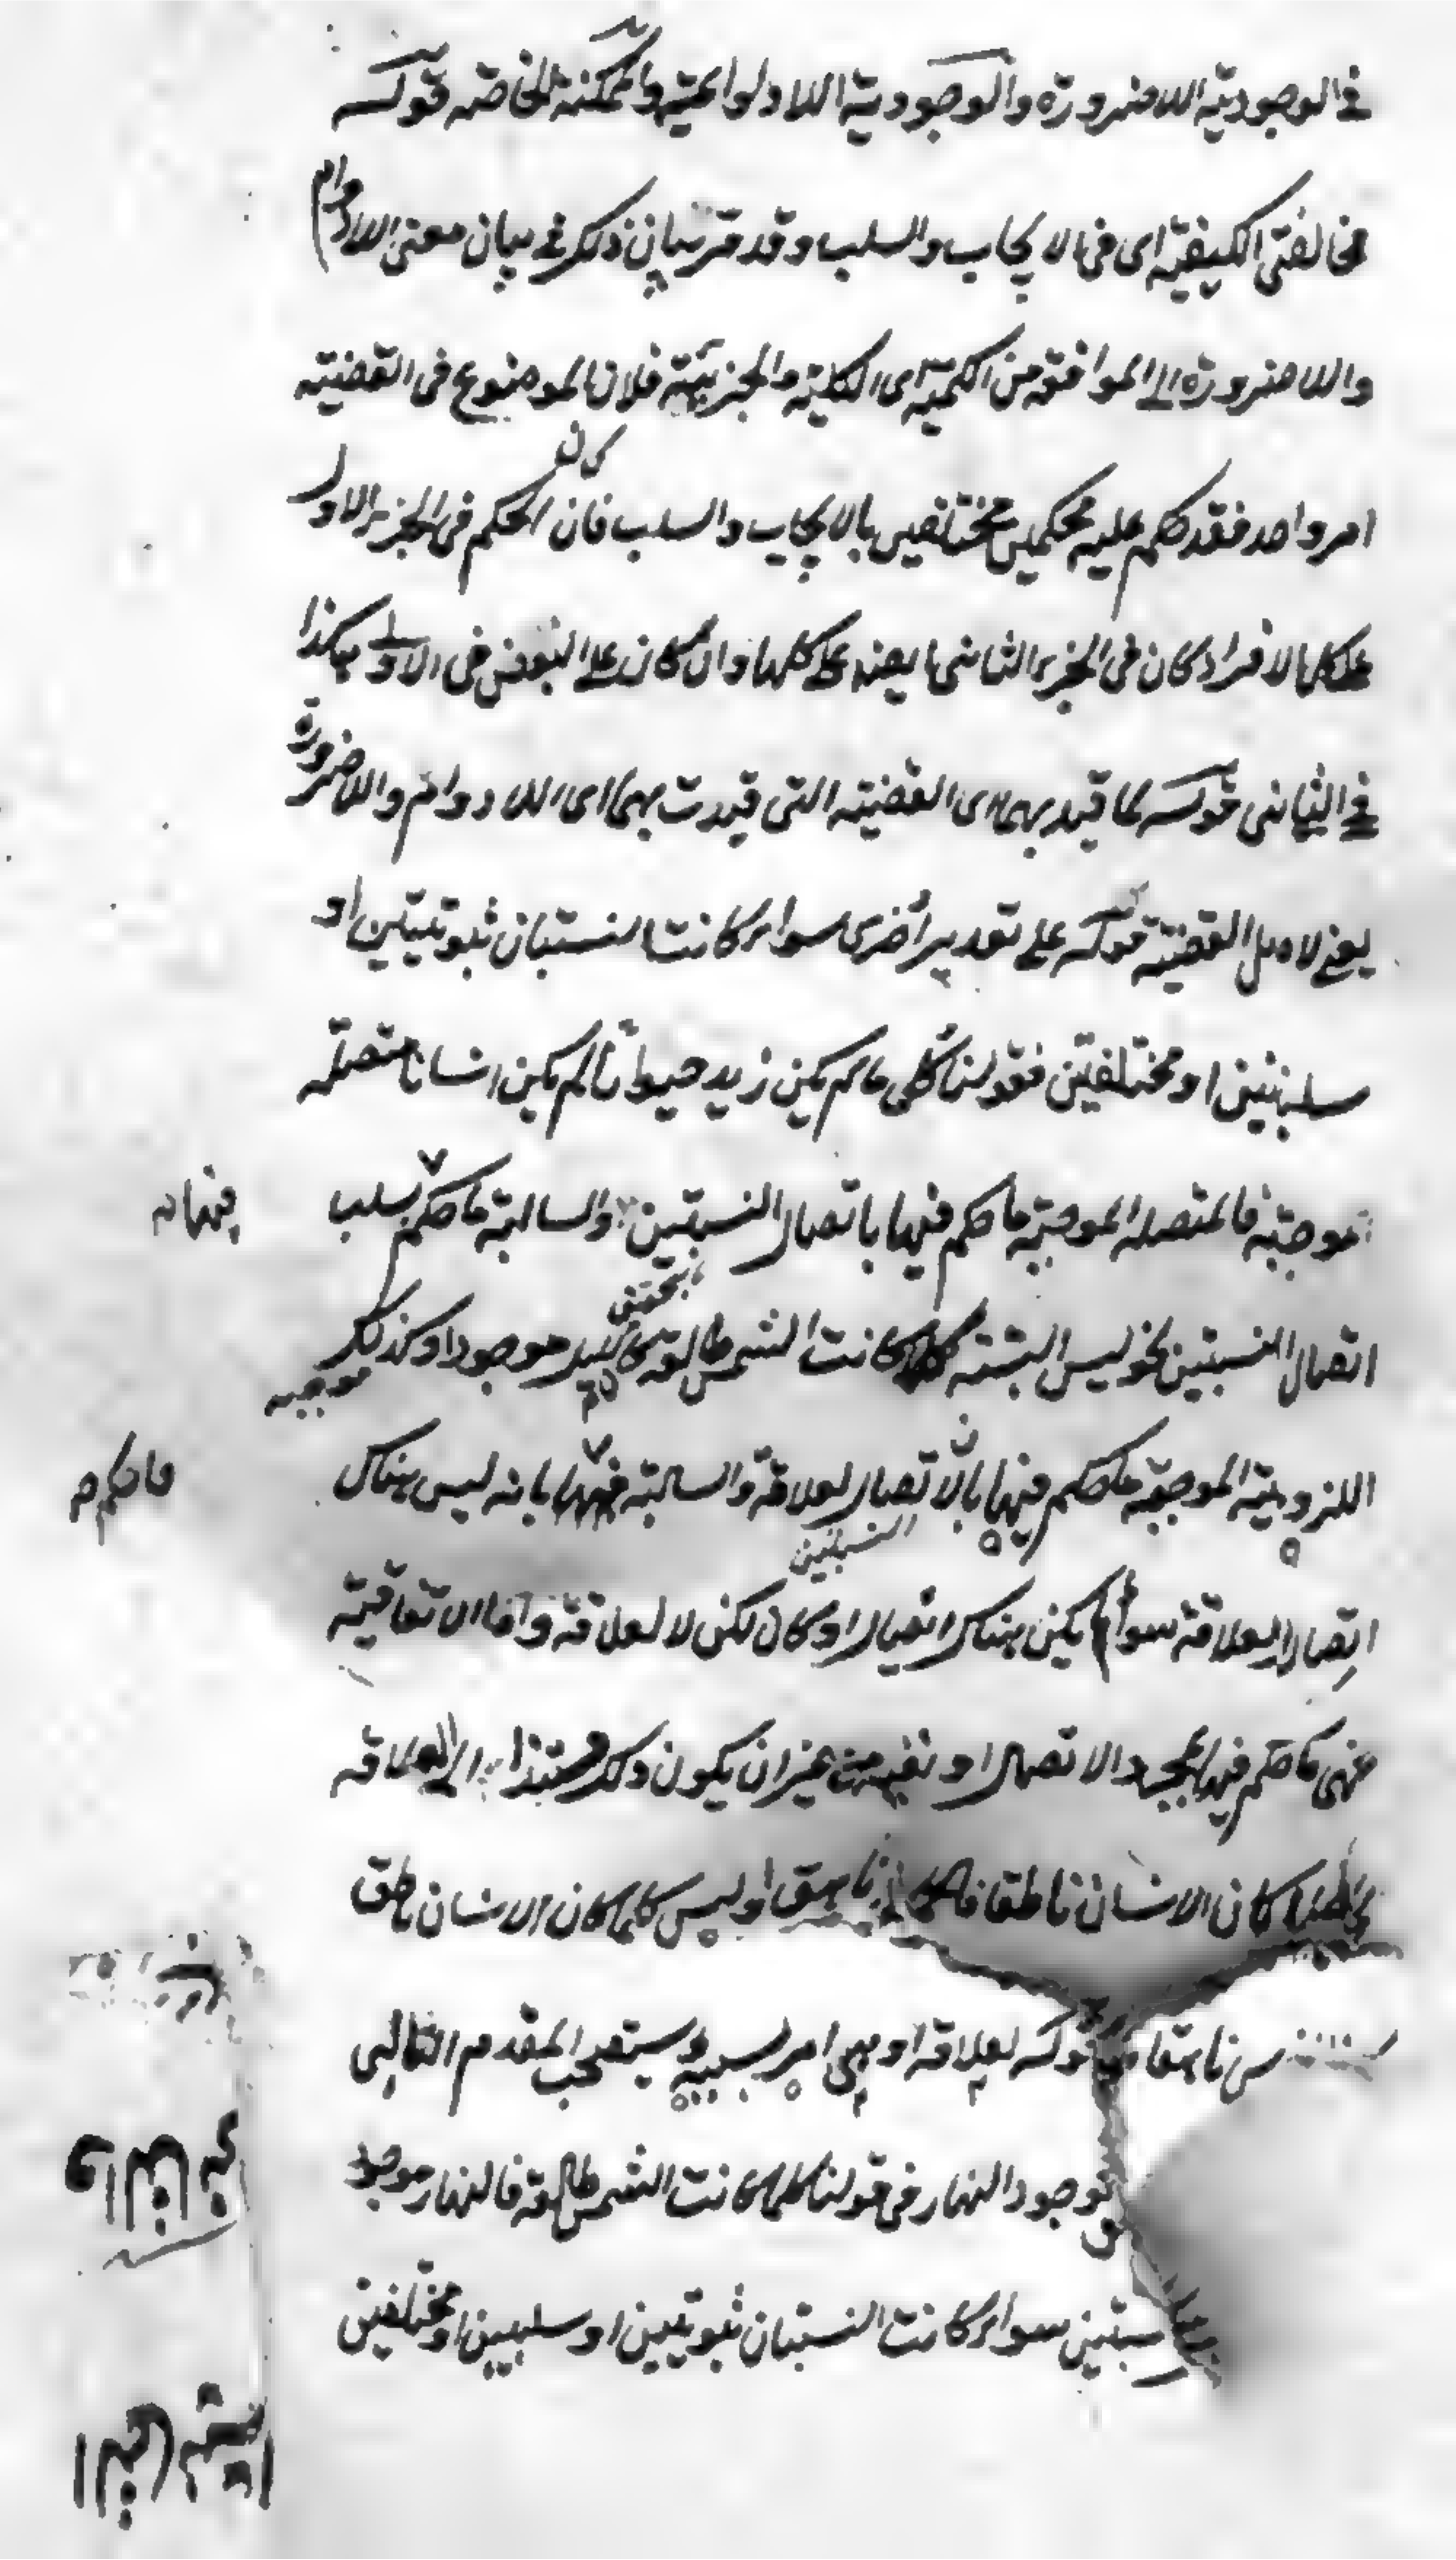 في الوجودية اللاضرورة والوجودية اللادوائمية والممكنة الخاصة قوله
مخالفتي الكيفية اى فى الايجاب والسلب وقد مر بيان ذلك في بيان معنى اللادوام
واللاضرورة الى الموافقة من الكمية اى الكلية والجزئية فلان الموضوع فى القضية
امر واحد فقد حكم عليه بحكمين مختلفين بالايجاب والسلب فان كان الحكم فى الجزء الاول
على كل الافراد كان فى الجزء الثانى ايضا على كلها وان كان على البعض فى الاول هكذا
في الثانى قوله لما قيد بهما اى القضية التى قيدت بهما اى اللادوام واللاضرورة
يعنى لاصل القضية قوله على تقدير أخرى سواء كانت النسبتان ثبوتيتين او
سلبيتين او مختلفتين فقولنا كلما لم يكن زيد حيوانا لم يكن انسانا متصلة
موجبة فالمتصلة الموجبة ما حكم فيها باتصال النسبتين والسالبة ما حكم بسلب
فيها
اتصال النسبتين نحو ليس البتة كلما كانت الشمس طالعة كان الليل موجودا وكذلك
موجبه
اللزومية الموجبة ما حكم فيها بالاتصال لعلاقة والسالبة فيها بانه ليس هناك
ما حكم
النسبتين
اتصال لعلاقة سواء لم يكن هناك اتصال او كان لكن لا لعلاقة واما الاتفاقية
فهى ما حكم فيها بمجرد الاتصال او نفيه من غير ان يكون ذلك مستندا الى العلاقة
كان الانسان ناطقا ناهق او ليس كلما كان الانسان ناطق
س ناهقا قوله لعلاقة او هى امر بسببه يستصحب المقدم التالى
لوجود النهار فى قولنا كلما كانت الشمس طالعة فالنهار موجود
سبتين سواء كانت النسبتان ثبوتيتين او سلبيتين او مختلفتين